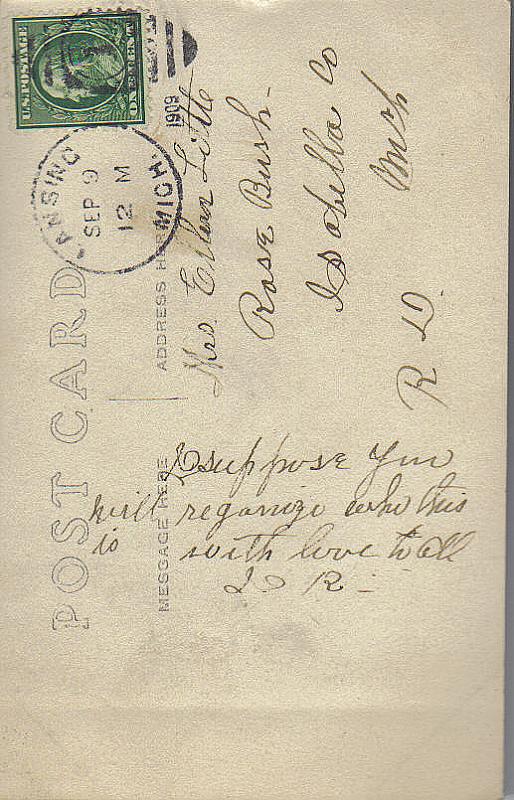 U.S.POSTAGE
ONE CENT
LANSING MICH.
SEP 9
12 M
1909
POST CARD
ADDRESS HERE
MESSAGE HERE
Mrs Ellen Little
Rose Bush-
Isabella Co
Mich
R D.
I suppose you
will reganize who this
is with love to all
R -